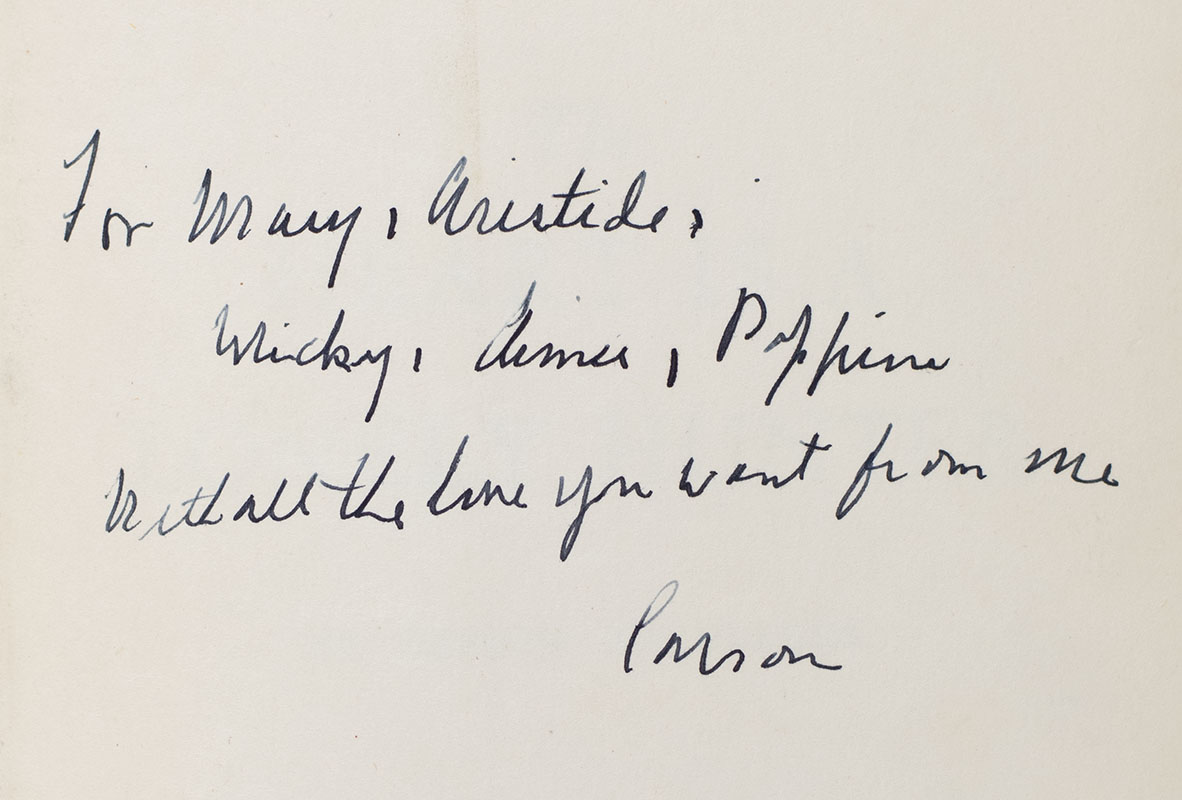 For Mary, Aristide,
Micky, , Poppine
With all the love you want from me
Carson